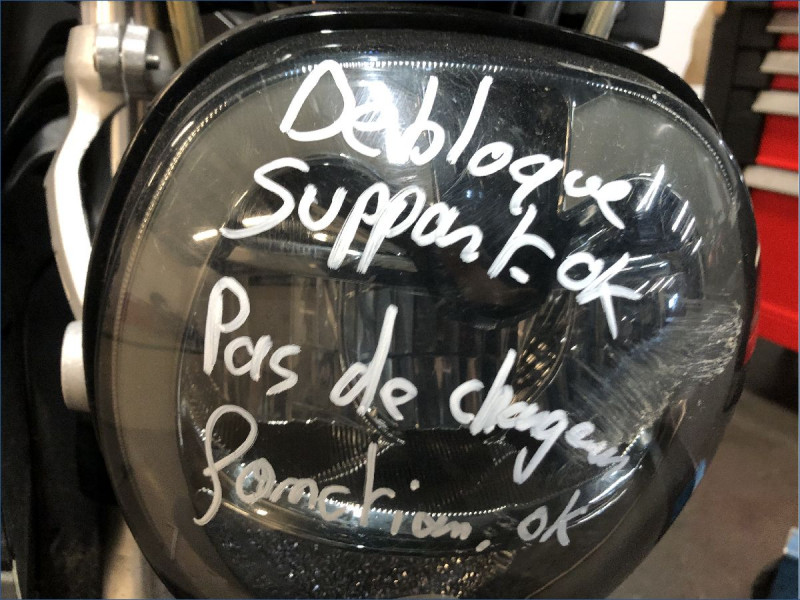 Debloque
Support. ok
Pas de chageur
fonction. ok